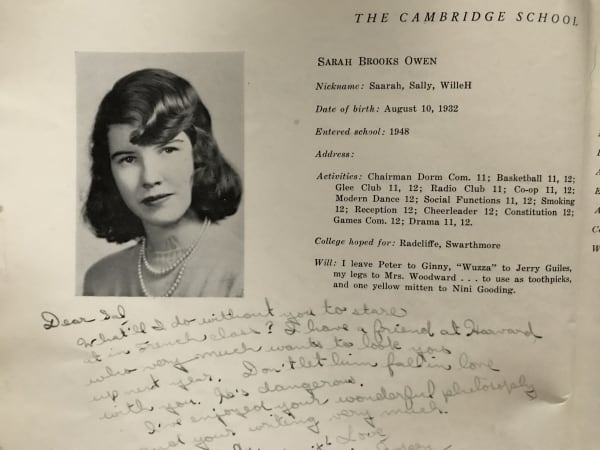 THE CAMBRIDGE SCHOOL
SARAH BROOKS OWEN
Nickname: Saarah, Sally, WilleH
Date of birth: August 10, 1932
Entered school: 1948
Address:
Activities: Chairman Dorm Com. 11; Basketball 11, 12;
Glee Club 11, 12; Radio Club 11; Co-op 11, 12;
Modern Dance 12; Social Functions 11, 12; Smoking
12; Reception 12; Cheerleader 12; Constitution 12;
Games Com. 12; Drama 11, 12.
College hoped for: Radcliffe, Swarthmore
Will: I leave Peter to Ginny, "Wuzza" to Jerry Guiles,
my legs to Mrs. Woodward . . . to use as toothpicks,
and one yellow mitten to Nini Gooding.
Dear Sal
What'll I do without you to stare
at in French class? I have a friend at Harvard
who very much wants to look you
up next year. Don't let him fall in love
with you. He's dangerous.
I've enjoyed your wonderful philosophy
and your writing very much.
Love